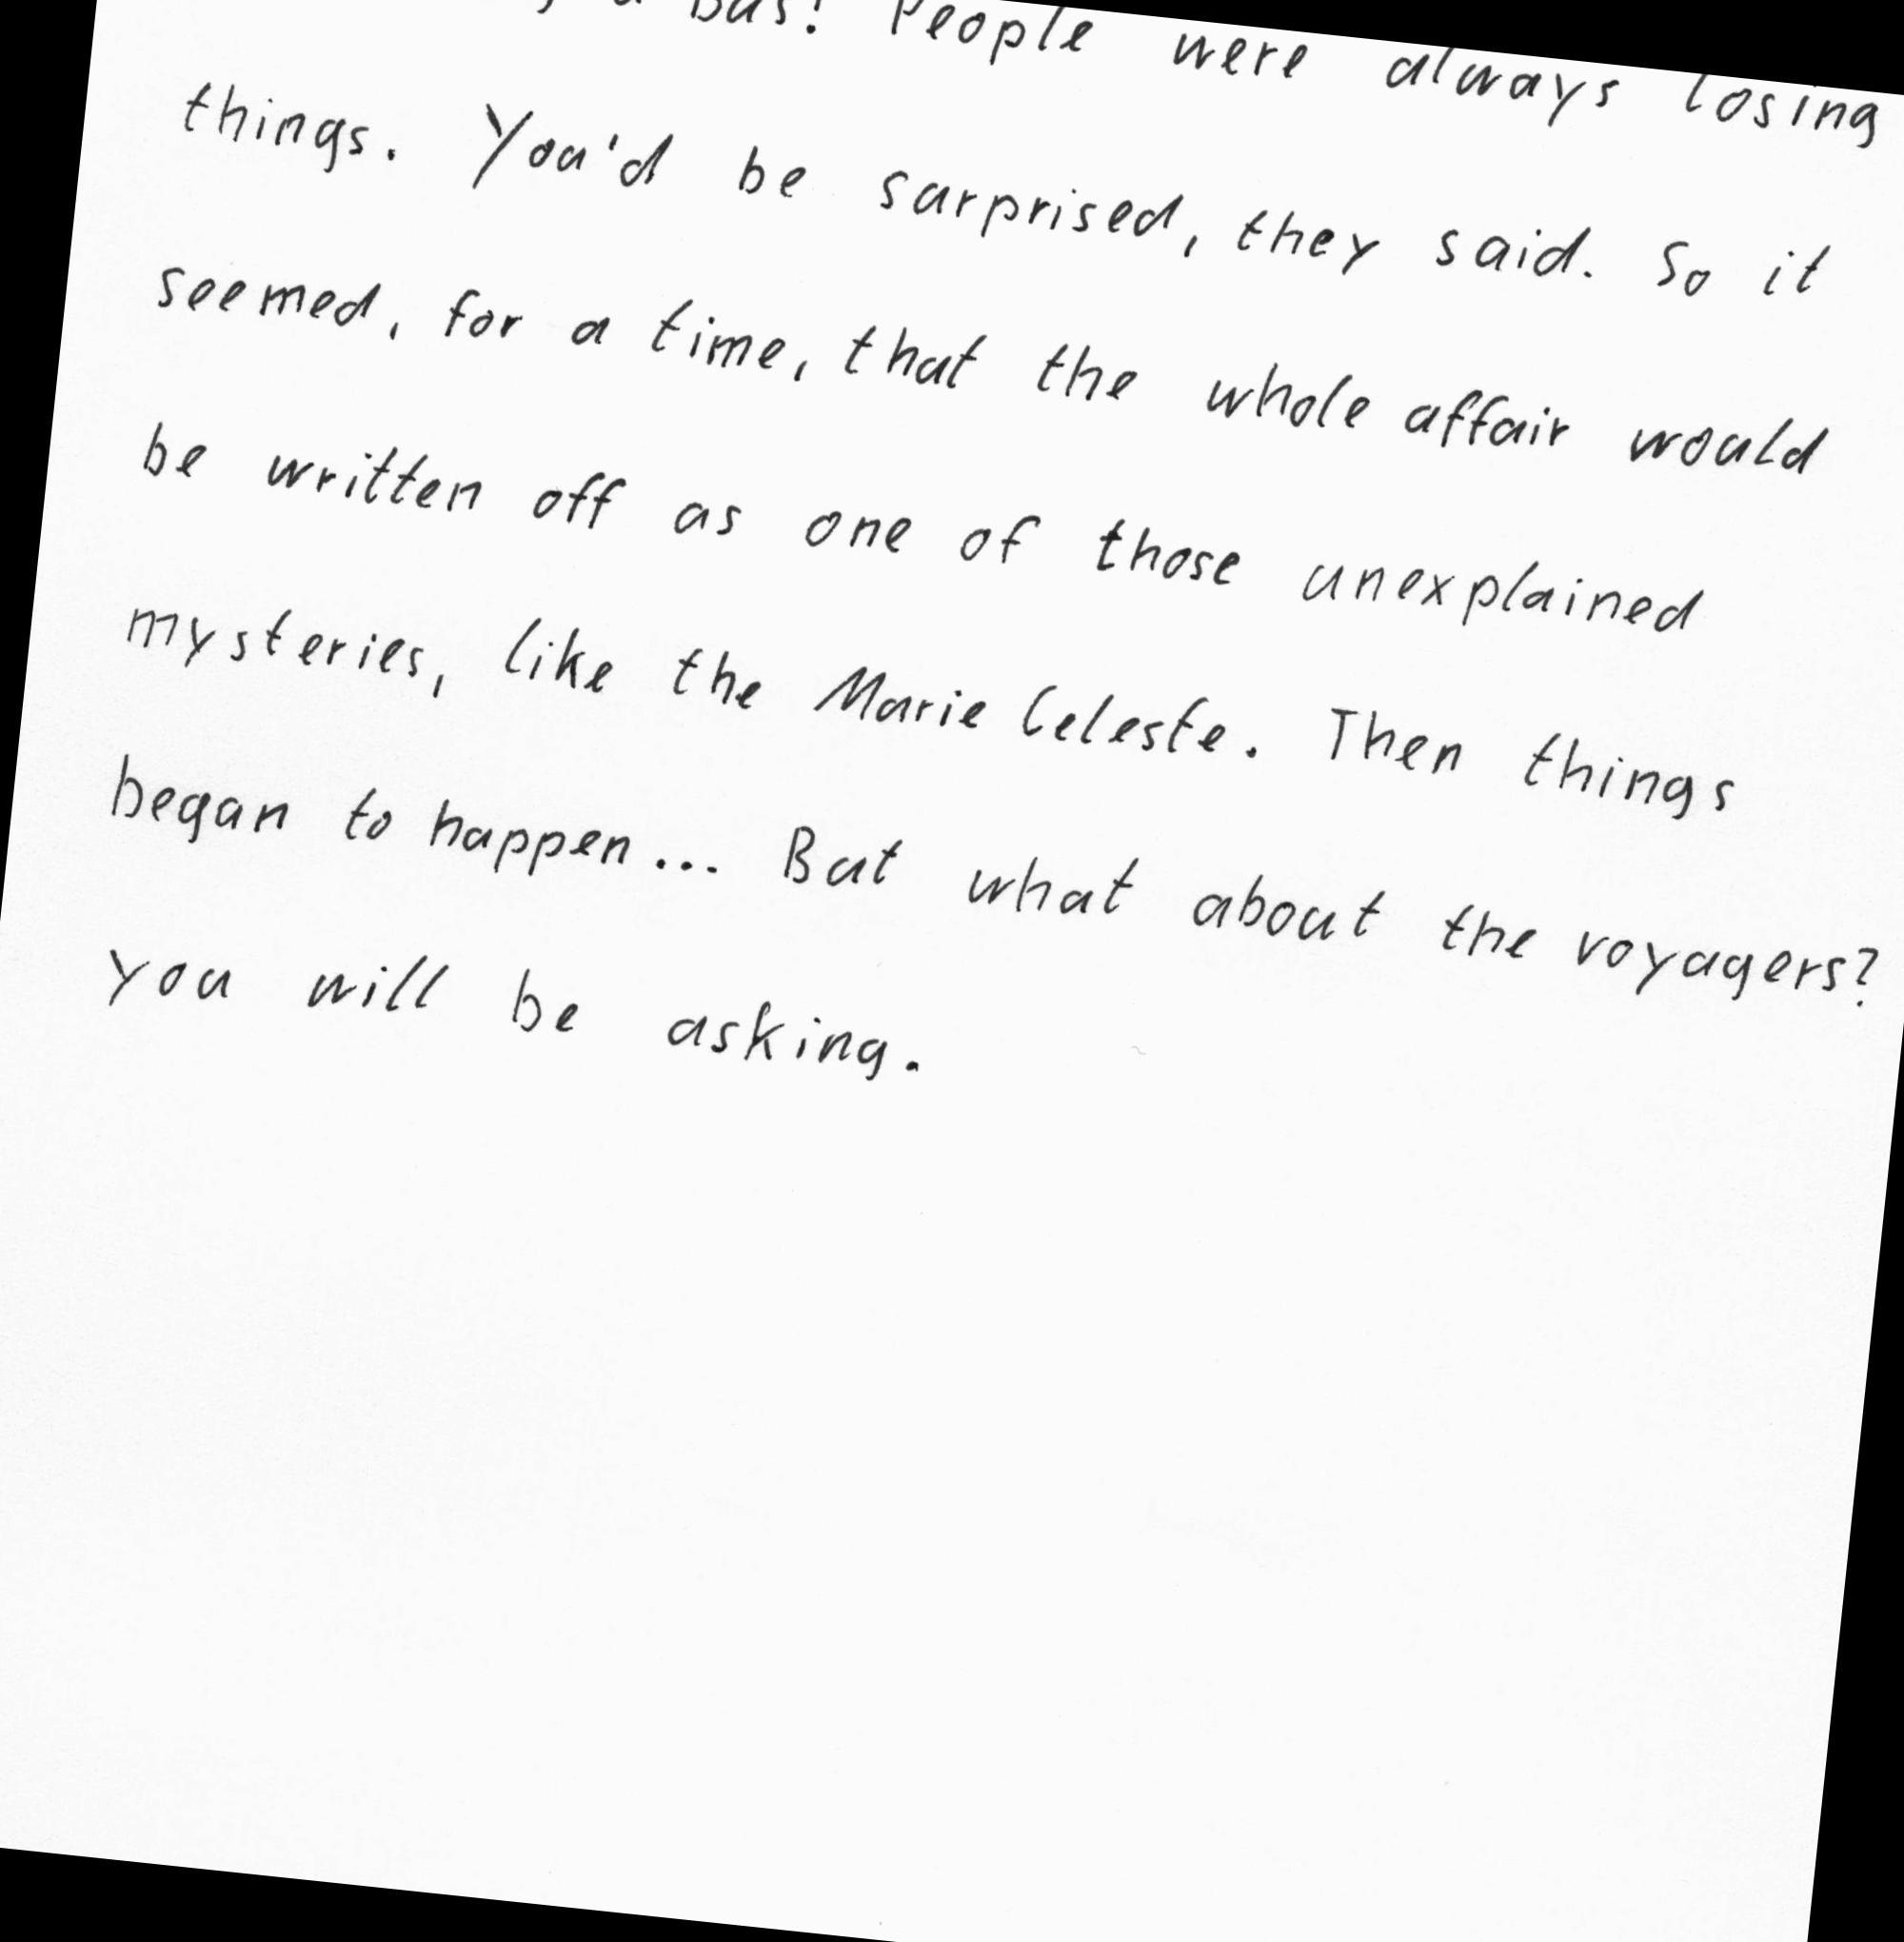 a bus! People were always losing
things. You'd be surprised, they said. So it
seemed, for a time, that the whole affair would
be written off as one of those unexplained
mysteries, like the Marie Celeste. Then things
began to happen... But what about the voyagers?
you will be asking.